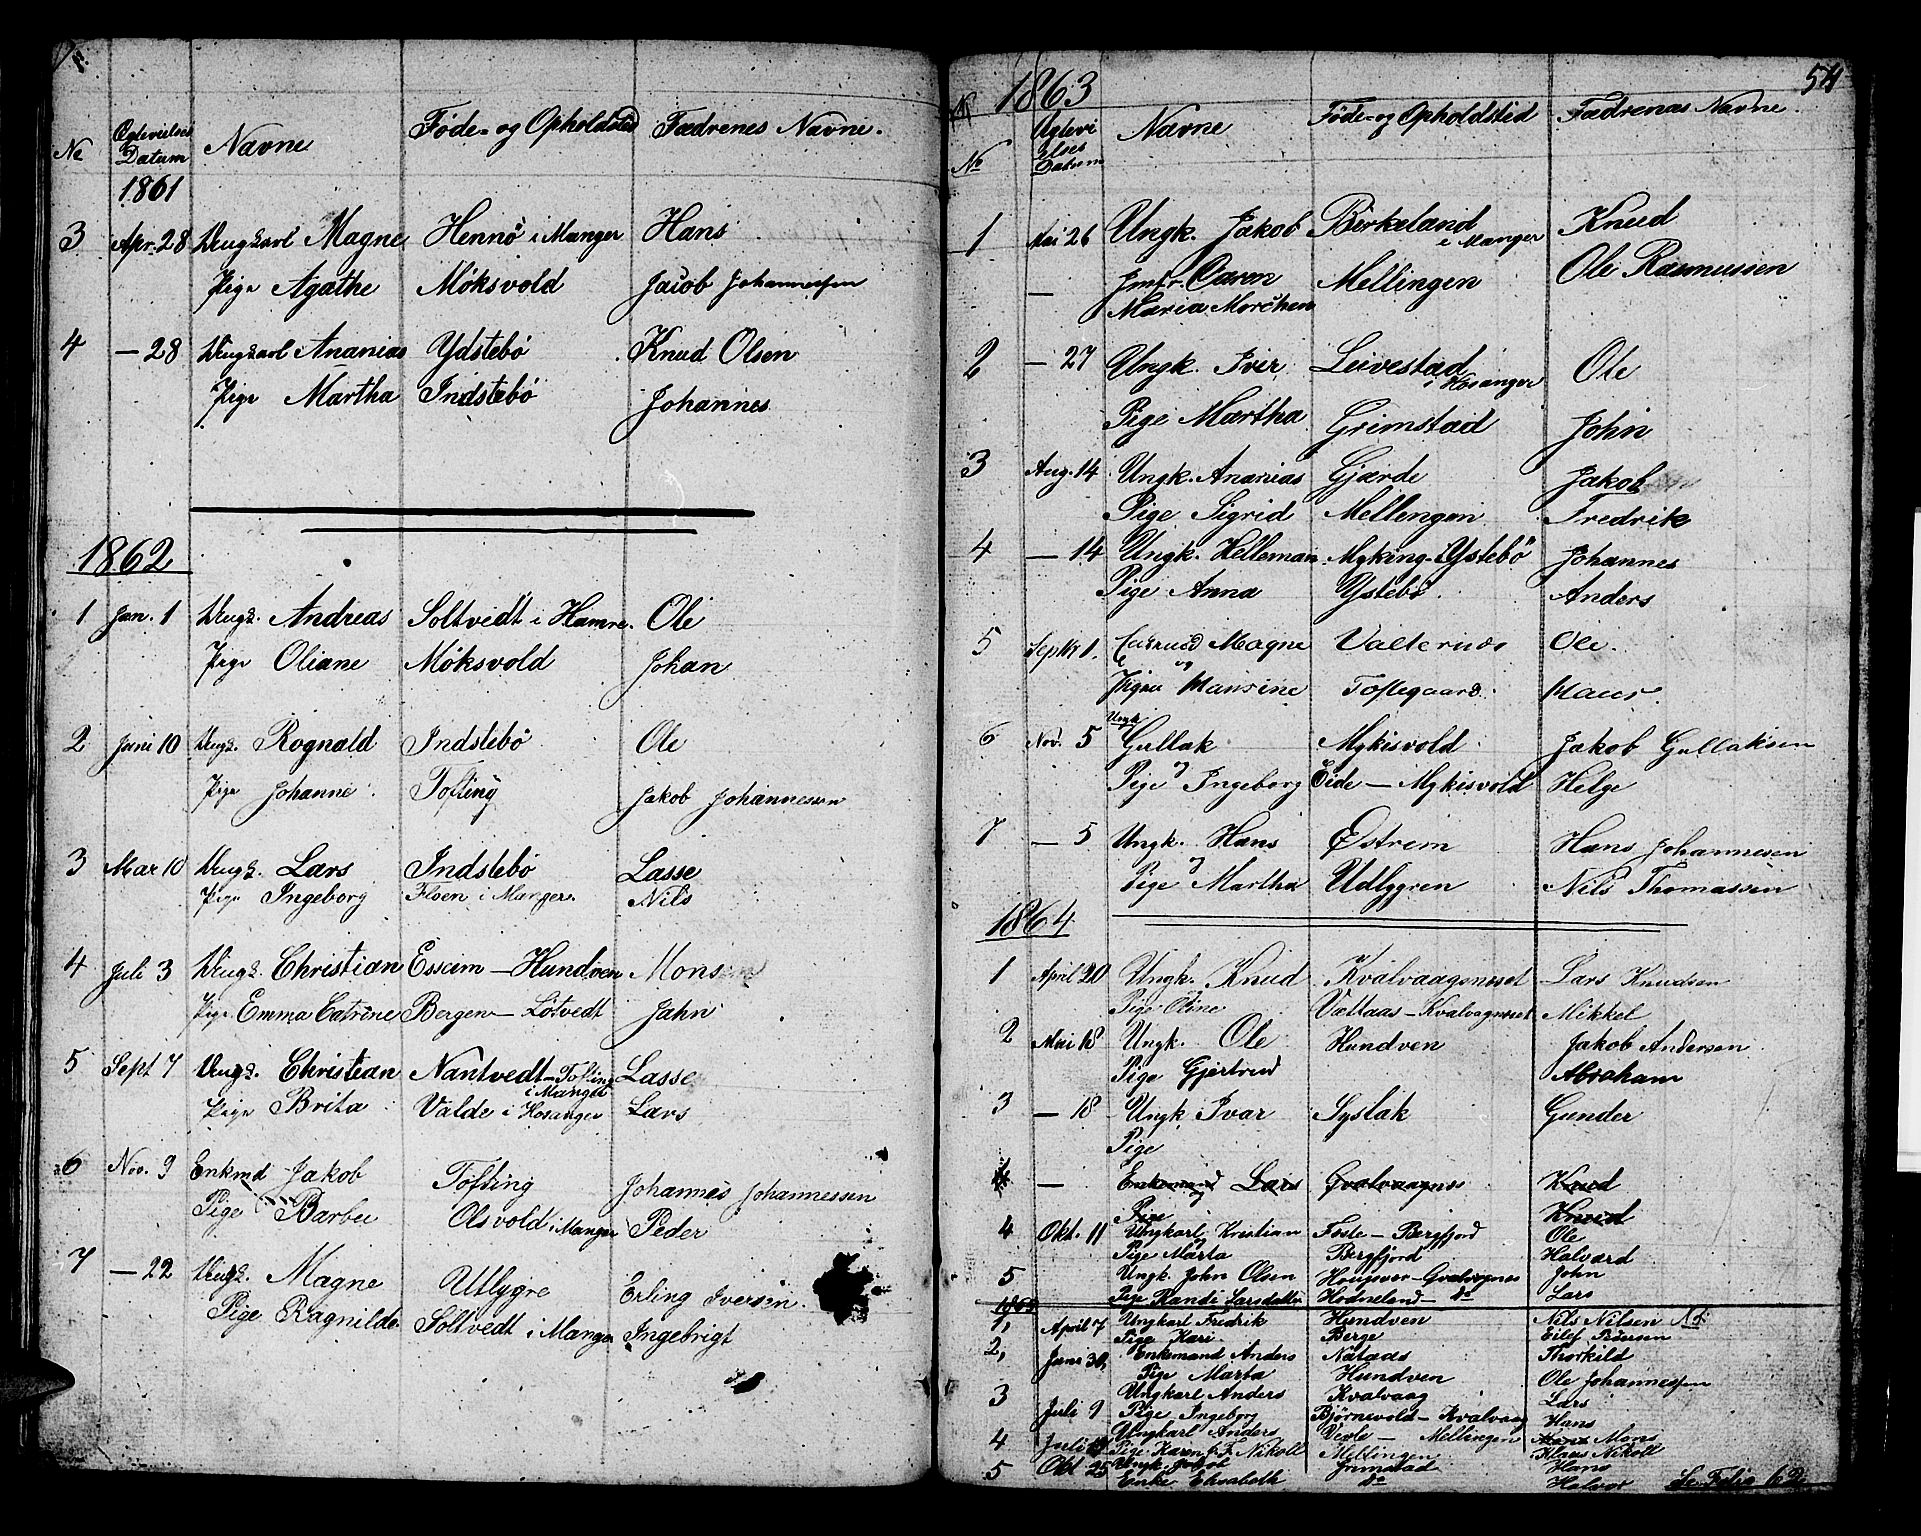 No Datum Navne Føde- og Opholdsted Fædrenes Navne.
1861
3 Apr. 28 Ungkarl Magne Hennø i Manger Hans
Pige Agathe Møksvold Jacob Johannessen
4 — 28 Ungkarl Ananias Ydstebø Knud Olsen
Pige Martha Indstebø Johannes
1862
1 Jan. 1 Ungk. Andreas Soltvedt i Hamre. Ole
Pige Oliane Møksvold Johan
2 Juni 10 Ungk. Rognald Indstebø Ole
Pige Johanne Tofting Jakob Johannessen
3 Mar 10 Ungk. Lars Indstebø Lasse
Pige Ingeborg Floen i Manger. Nils
4 Juli 3 Ungk. Christian Esseim — Hundven Mons
Pige Emma Catrine Bergen — Løtvedt Jahn
5 Sept 7 Ungk. Christian Nantvedt — Tofting Lasse
i Manger
Pige Brita Valde i Hosanger Lars
6 Nov. 9 Enkmd Jakob Tofting Johannas Johannessen
Pige Barbu Olsvold i Manger Peder
7 — 22 Ungk. Magne Utlygre Erling Iversen.
Pige Ragnilde Soltvedt i Manger Ingebrigt
54
1863
No Datum Navne Føde- og Opholdstid Fædrenas Navne.
1 Mai 26 Ungk. Jakob Birkeland i Manger Knud
— Jmfr. Caren Mellingen Ole Rasmussen
Maria Morchen
2 — 27 Ungk. Iver Leivestad i Hosanger Ole
Pige Martha Grimstad John
3 Aug. 14 Ungk. Ananias Gjærde Jakob
Pige Sigrid Mellengen Fredrik
4 — 14 Ungk. Helleman Myking - Ystebø Johannes
Pige Anna Ystebø Anders
5 Septbr 1. Magne Valdernæs Ole.
og
Pigen Hansine Toftegaard. Klaus
6 Nov. 5 Ungk. Gullak Mykisvold Jakob Gullaksen
Pige Ingeborg Eide — Mykisvold Helge
7 — 5 Ungk. Hans Østrem Hans Johannesen
Pige Martha Udlygren Nils Thomassen
1864
1 April 20 Ungk. Knud Kvalvaagsneset Lars Knudsen
Pige Oline Valtaas — Kvalvagneset Mikkel
2 Mai 18 Ungk. Ole Hundven Jakob Andersen
Pige Gjertrud Abraham
3 — 18 Ungk. Ivar Syslak Gunder
Pige
4 — Enkemand Lars Qvalvaagnes Knud
Pige Knud
4 Okt. 11 Ungkarl Kristian Foste — Bergfjord Ole
Pige Marta Bergfjord Halvard
5 Ungk. John Olsen Hougsvær — Qvalvognes John
Pige Randi Larsdatter Hodneland — do Lars
1, April 7 Ungkarl Fredrik Hundven Nils Nilsen
Pige Kari Berge Eilef Pedersen
2, Juni 30, Enkemand Anders Nataas Thorkild
Pige Marta Hundven Ole Johannessen
3 Juli 9 Ungkarl Anders Kvalvaag Lars
Pige Ingeborg Bjørnevold — Kvalvaag Hans
4 Juli Ungkarl Anders Vexle — Mellingen Mons
Pige Karen J. F. Nikoll Mellingen Klaus Nikoll
5 Okt 25 Ungk. Jakob Grimstad Hans
Enke Elisabeth do
Se Folio 62